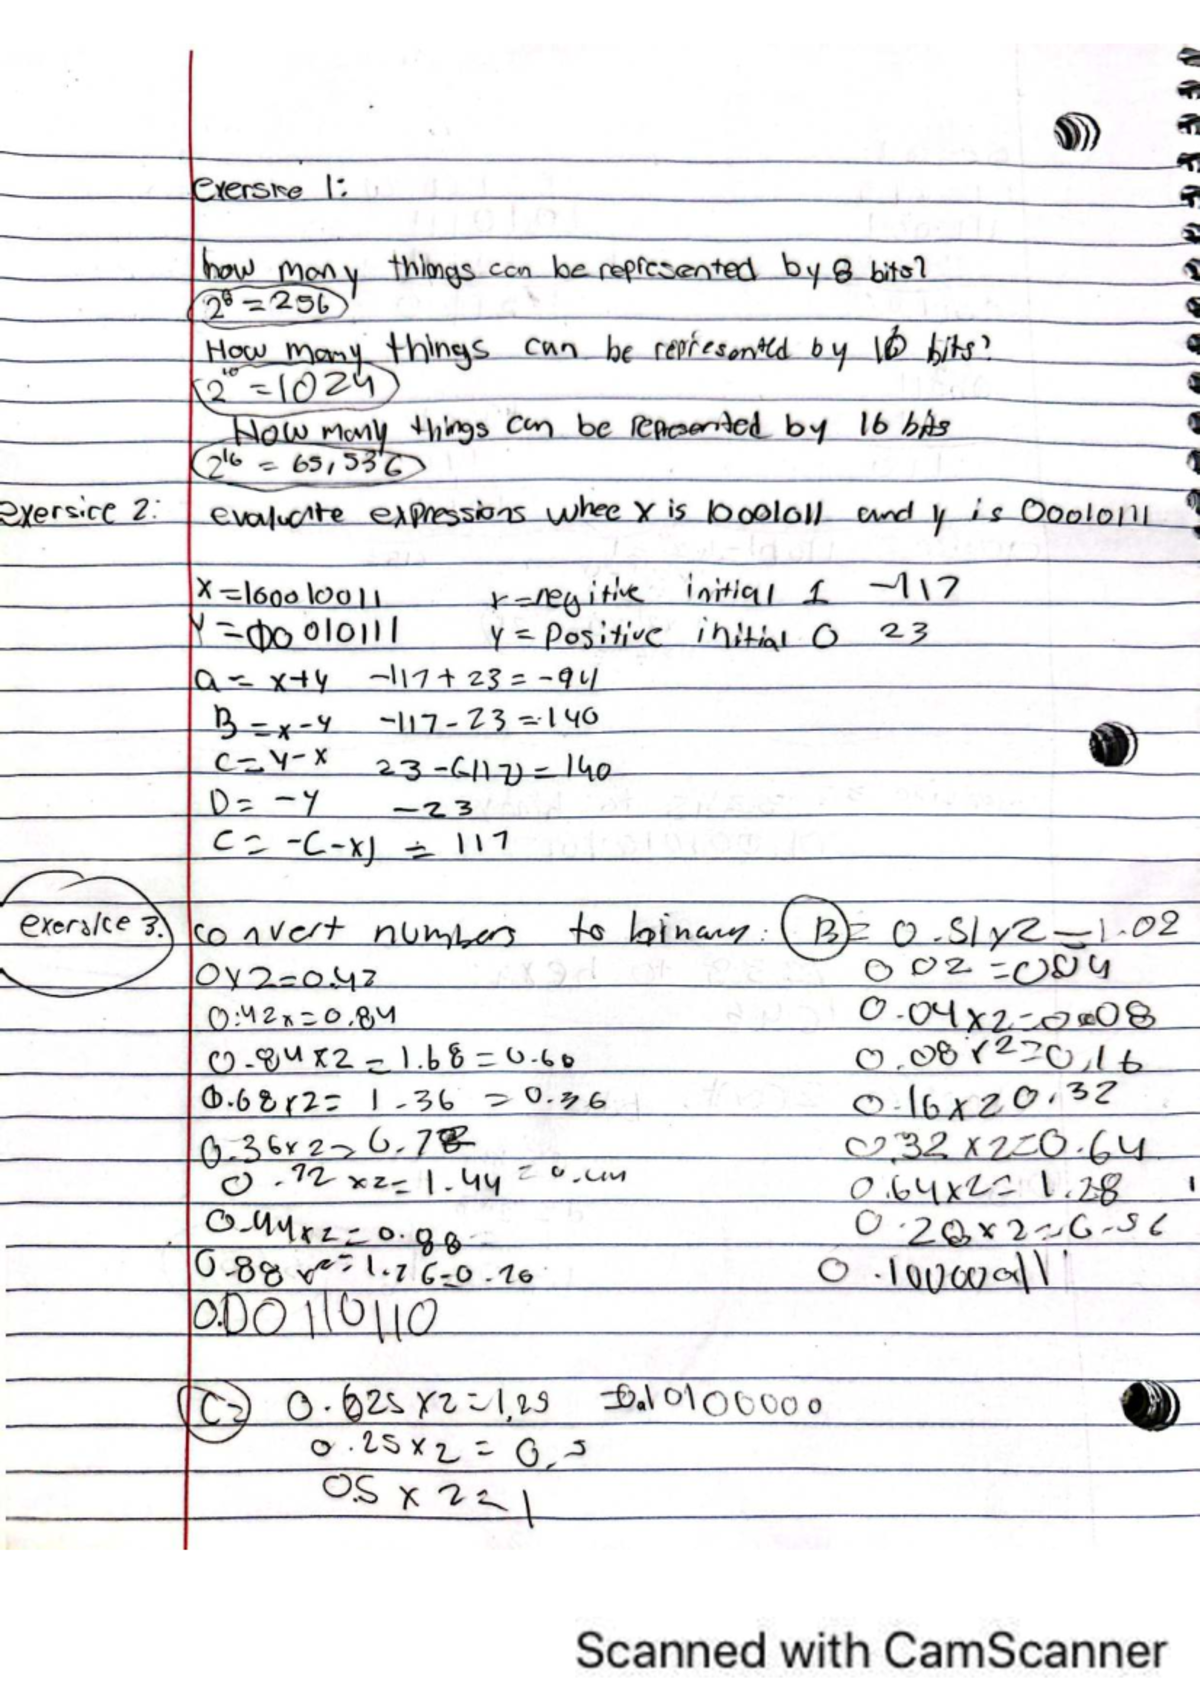 exersice 1:
how many things can be represented by 8 bits?
2^8 = 256
How many things can be represented by 10 bits?
2^10 = 1024
How many things can be represented by 16 bits
2^16 = 65,536
exersice 2: evaluate expressions whee x is 10001011 and y is 00010111
X = 100010011 x = negitive initial 1 -117
Y = 00010111 y = Positive initial 0 23
a = x+y -117 + 23 = -94
B = x-y -117 - 23 = -140
C = y-x 23-(-117) = 140
D = -y -23
C = -(-x) = 117
exersice 3. convert numbers to binary:
0x2=0.42
0.42x=0.84
0.84x2=1.68=0.60
0.68x2= 1.36 = 0.36
0.36x2=0.72
0.72 x2=1.44=0.44
0.44x2=0.88
0.88 x2=1.76=0.76
0.00110110
B= 0.51x2=1.02
0 02 =0.04
0.04x2=0.08
0.08x2=0.16
0.16x2 0.32
0.32x2=0.64
0.64x2=1.28
0.28x2=0.56
C= 0.625x2=1.25 =0.10100000
0.25x2 = 0.5
0.5 x 2 = 1
Scanned with CamScanner